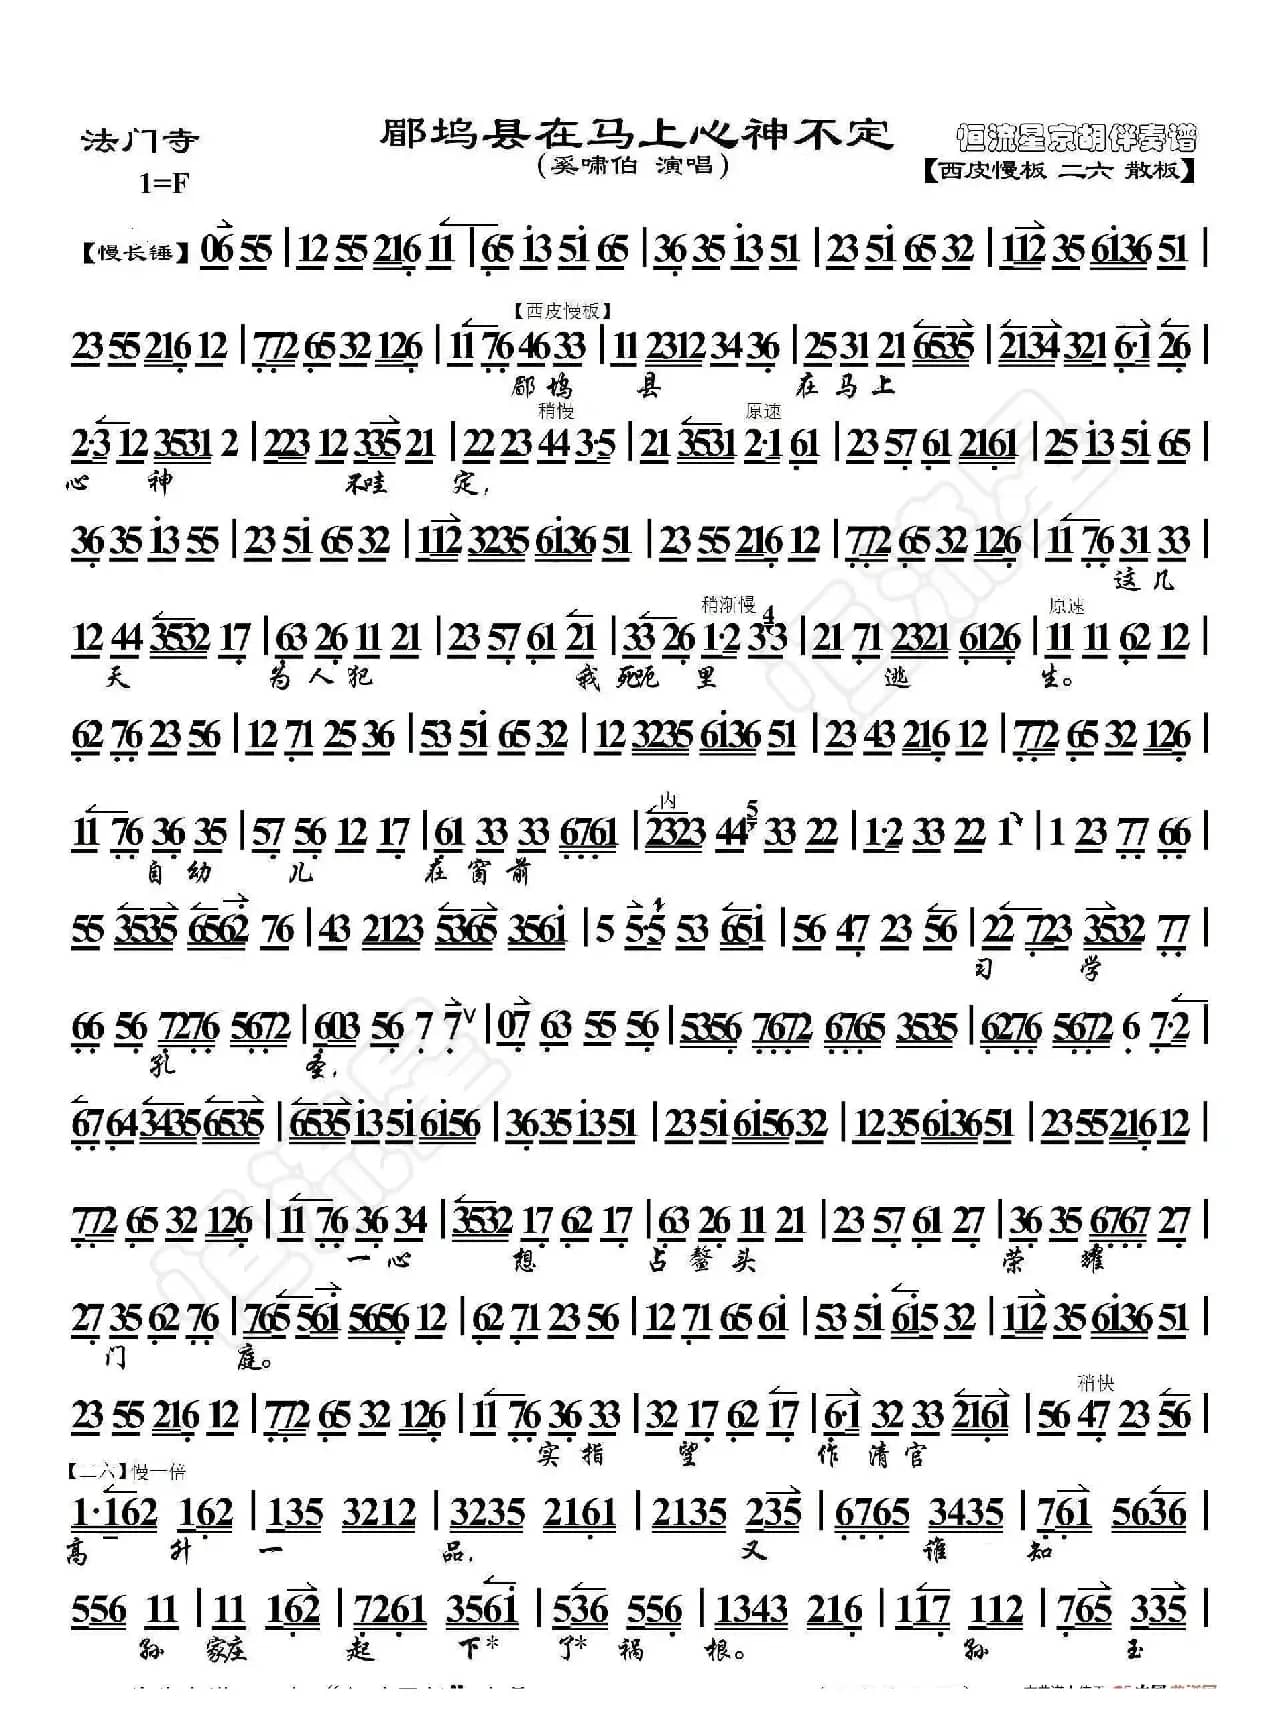 法门寺
郿坞县在马上心神不定
(奚啸伯 演唱)
恒流星京胡伴奏谱
【西皮慢板 二六 散板】
1=F
【慢长锤】 06 55 | 12 55 216 11 | 65 13 51 65 | 36 35 13 51 | 23 51 65 32 | 112 35 6136 51 |
【西皮慢板】
23 55 216 12 | 772 65 32 126 | 11 76 46 33 | 11 2312 34 36 | 25 31 21 6535 | 2134 321 6·1 26 |
郿坞 县 在马上
稍慢 原速
2·3 12 3531 2 | 223 12 335 21 | 22 23 44 3·5 | 21 3531 2·1 61 | 23 57 61 2161 | 25 13 51 65 |
心 神 不哇 定,
36 35 13 55 | 23 51 65 32 | 112 3235 6136 51 | 23 55 216 12 | 772 65 32 126 | 11 76 31 33 |
这几
稍渐慢 原速
12 44 3532 17 | 63 26 11 21 | 23 57 61 21 | 33 26 1·2 33 | 21 71 2321 6126 | 11 11 62 12 |
天 为人犯 我死 里 逃 生。
62 76 23 56 | 12 71 25 36 | 53 51 65 32 | 12 3235 6136 51 | 23 43 216 12 | 772 65 32 126 |
内
11 76 36 35 | 57 56 12 17 | 61 33 33 6761 | 2323 44 33 22 | 1·2 33 22 1 | 1 23 77 66 |
自幼 儿 在窗前
55 3535 6562 76 | 43 2123 5365 3561 | 5 5·5 53 651 | 56 47 23 56 | 22 723 3532 77 |
习 学
66 56 7276 5672 | 603 56 7 7 | 07 63 55 56 | 5356 7672 6765 3535 | 6276 5672 6 7·2 |
孔 圣,
6764 3435 6535 | 6535 1351 6156 | 3635 1351 | 2351 615632 | 1235 613651 | 2355 21612 |
772 65 32 126 | 11 76 36 34 | 3532 17 62 17 | 63 26 11 21 | 23 57 61 27 | 36 35 6767 27 |
一心 想 占鳌头 荣耀
27 35 62 76 | 765 561 5656 12 | 62 71 23 56 | 12 71 65 61 | 53 51 615 32 | 112 35 6136 51 |
门 庭。
稍快
23 55 216 12 | 772 65 32 126 | 11 76 36 33 | 32 17 62 17 | 6·1 32 33 2161 | 56 47 23 56 |
实指 望 作清官
【二六】慢一倍
1·162 162 | 135 3212 | 3235 2161 | 2135 235 | 6765 3435 | 761 5636 |
高 升一 品, 又 谁 知
556 11 | 11 162 | 7261 3561 | 536 556 | 1343 216 | 117 112 | 765 335 |
孙 家庄 起 下* 了*祸 根。 孙 玉